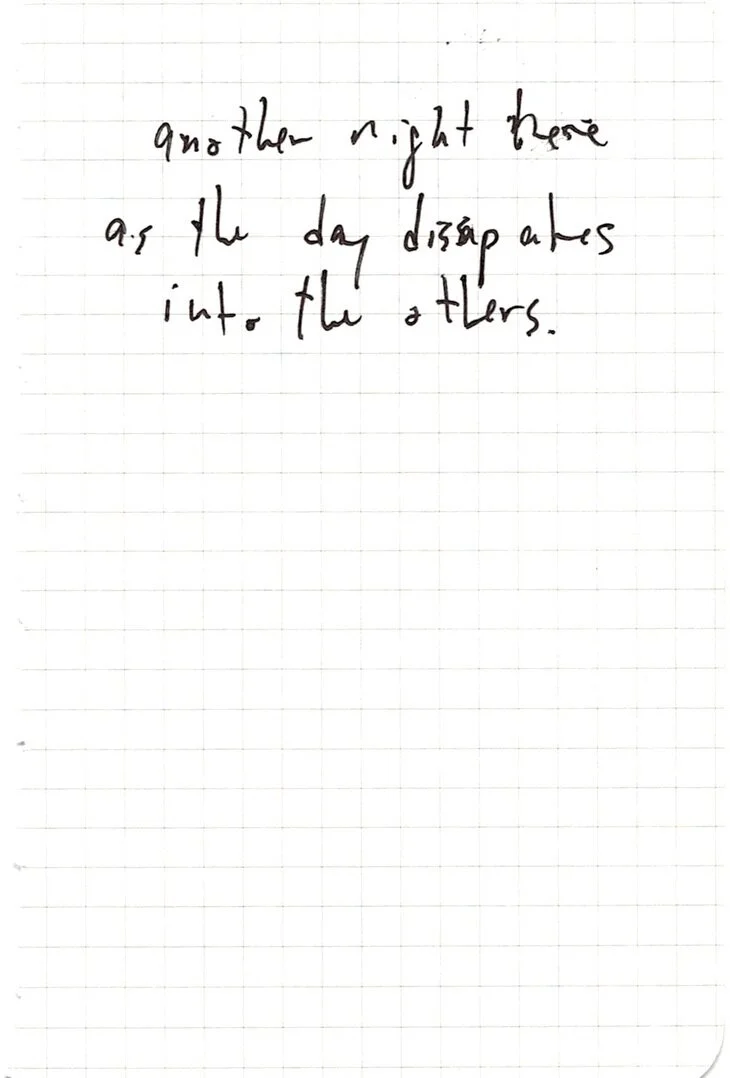 another night here
as the day dissapates
into the others.